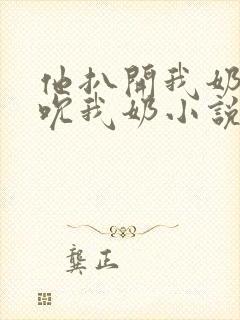 他扒開我奶
吮我奶小說
龔正